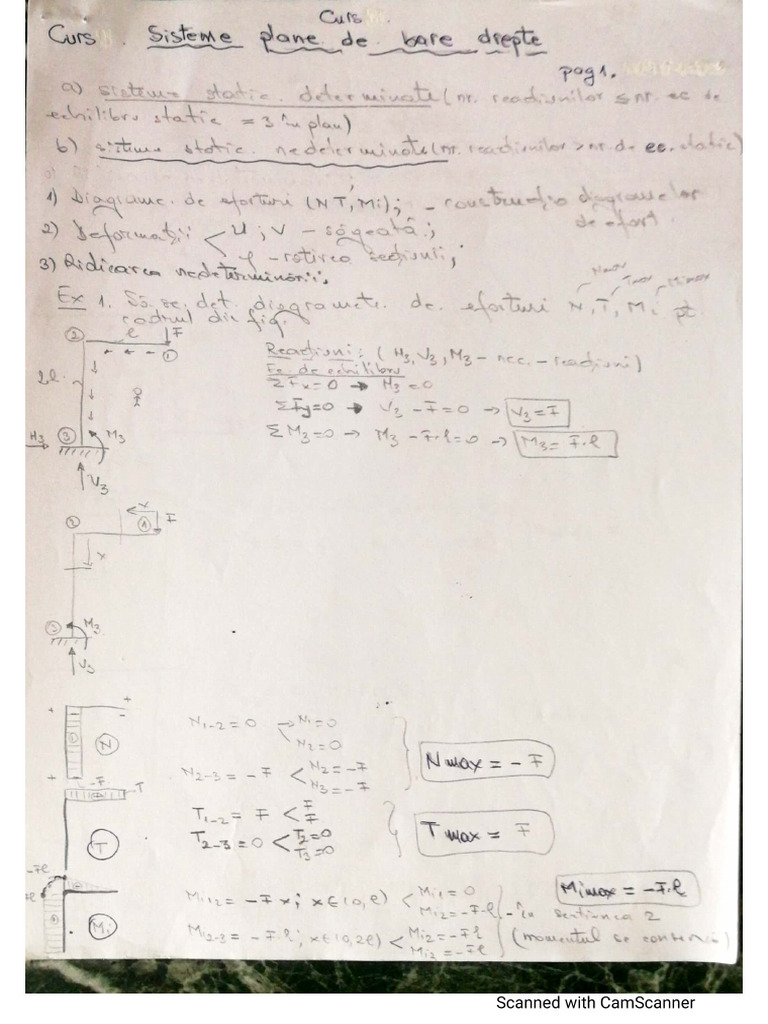 Curs
Curs . Sisteme plane de bare drepte
pag 1.
a) sisteme static determinate (nr. reacțiunilor ≤ nr. ec de
echilibru static = 3 în plan)
b) sisteme static nedeterminate (nr. reacțiunilor > nr. de ec. static)
1) Diagrame de eforturi (N T, Mi); - construcția diagramelor
de efort
2) Deformații < u ; v - săgeată ;
φ - rotirea secțiunii ;
3) Ridicarea nedeterminării.
Ex 1. Să se det. diagramele de eforturi N, T, Mi pt.
cadrul din fig.
2 l F
1
2l
3 M3
H3
V3
Reacțiuni: (H3, V3, M3 - nec. - reacțiuni)
Ec. de echilibru
ΣFx=0 → H3=0
ΣFy=0 → V3-F=0 → V3=F
ΣM3=0 → M3-F·l=0 → M3=F·l
x
2 1 F
x
3 M3
V3
N
N1-2=0 → N1=0
N2=0
N2-3=-F < N2=-F
N3=-F
Nmax = -F
-F T
T
T1-2= F < F
F
T2-3=0 < T2=0
T3=0
Tmax = F
-Fl
Mi
Mi12=-Fx; x∈(0,l) < Mi1=0
Mi2=-F·l - în secțiunea 2
Mi2-3=-F·l; x∈(0,2l) < Mi2=-Fl
Mi2=-Fl
(momentul se conservă)
Mimax = -F·l
Scanned with CamScanner